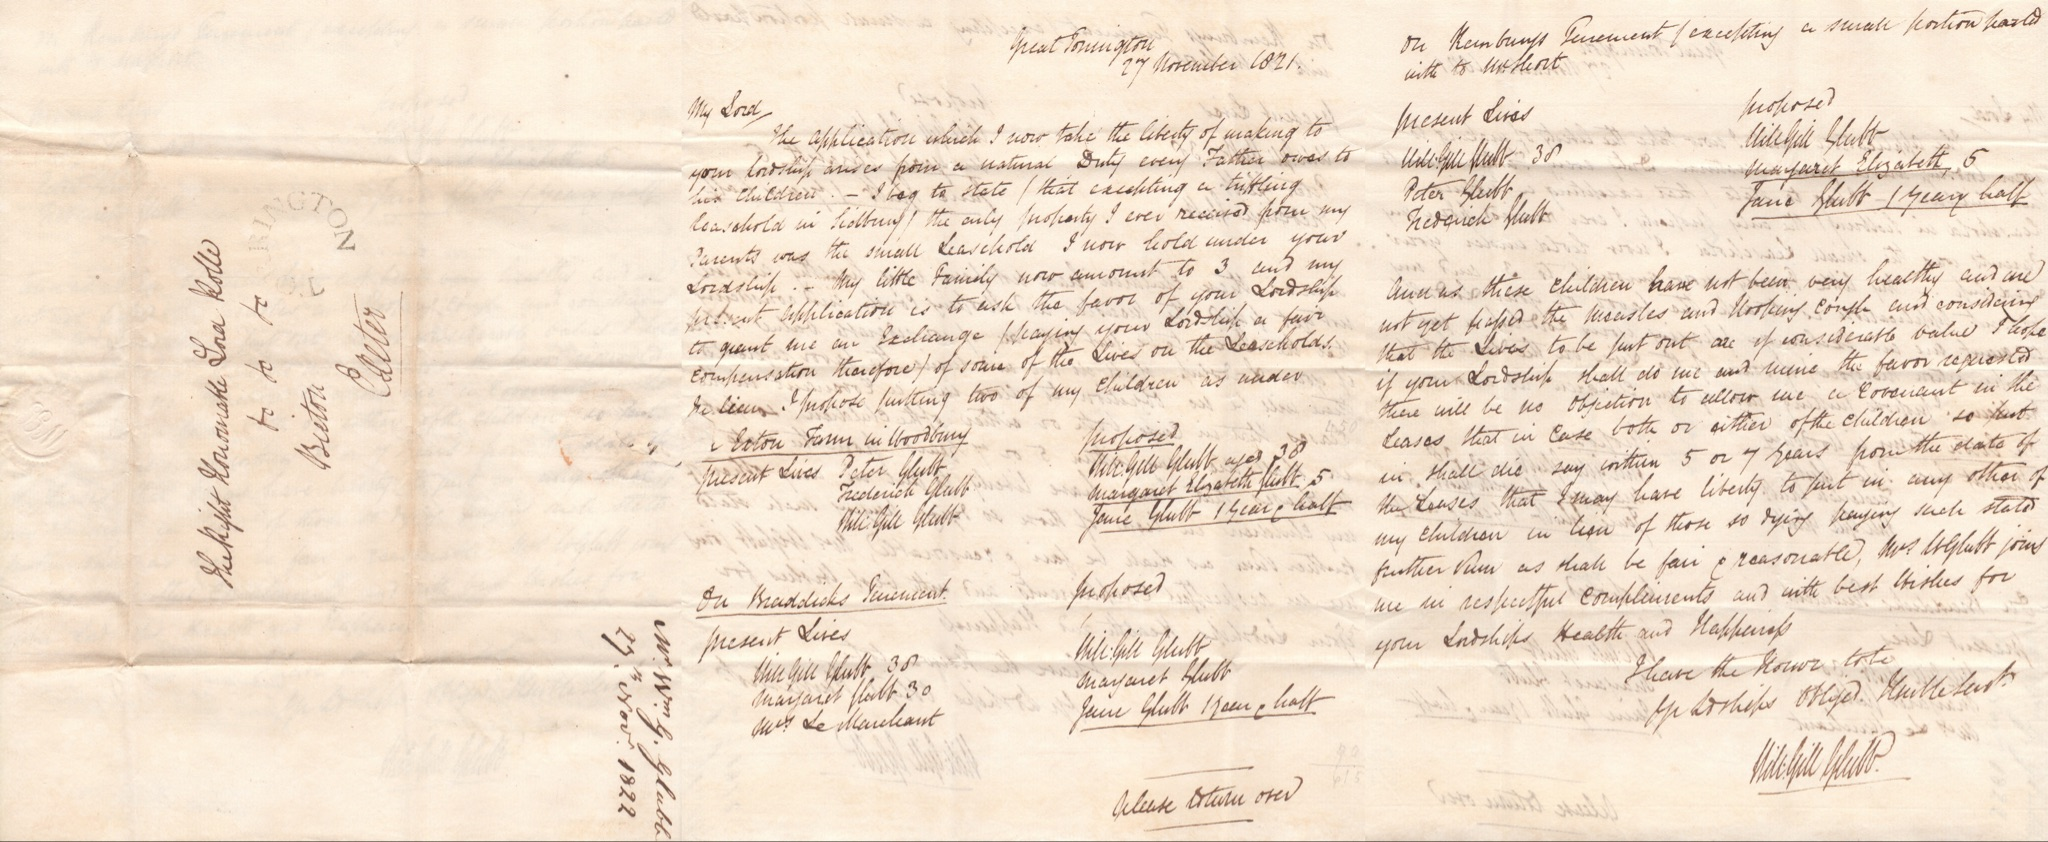 The Right Honourable Lord Rolle
&c &c &c
Bicton
Exeter
RINGTON
Mr. Wm. G. Glubb
27th Novr. 1822
Great Torrington
27 November 1821.
My Lord,
The application which I now take the liberty of making to
your Lordship arises from a natural Duty every Father owes to
his Children. – I beg to state (that excepting a trifling
leasehold in Sidbury) the only property I ever received from my
Parents was the small Leasehold I now hold under your
Lordship. – My little Family now amount to 3 and my
present application is to ask the favor of your Lordship
to grant me an Exchange (paying your Lordship a fair
compensation therefore) of some of the Lives on the Leaseholds.
In lieu I propose putting two of my children as under
Exton Farm in Woodbury
present Lives Peter Glubb
Frederick Glubb
Will: Gill Glubb
proposed
Will: Gill Glubb aged 38
Margaret Elizabeth Glubb 5
Jane Glubb 1 year & half
On Braddicks Tenement
present Lives
Will: Gill Glubb 38
Margaret Glubb 30
Mrs Le Marchant
proposed
Will: Gill Glubb
Margaret Glubb
Jane Glubb 1 year & half
Please return over
On Kemburys Tenement (excepting a small portion parted
with to Mr Short
present Lives
Will: Gill Glubb 38
Peter Glubb
Frederick Glubb
proposed
Will: Gill Glubb
Margaret Elizabeth, 5
Jane Glubb 1 year & half
And as these children have not been very healthy and are
not yet passed the measles and Hooping Cough and considering
that the Lives to be put out are of considerable value I hope
if your Lordship shall do me and mine the favor requested
there will be no objection to allow me a Covenant in the
Leases that in case both or either of the children so put
in shall die say within 5 or 7 years from the date of
the Leases that I may have liberty to put in any other of
my children in lieu of those so dying paying such stated
further Sum as shall be fair & reasonable, Mrs W Glubb joins
me in respectful compliments and with best Wishes for
your Lordships Health and Happiness
I have the Honor to be
Yr Ldships Obliged Humble Servt.
Will: Gill Glubb.